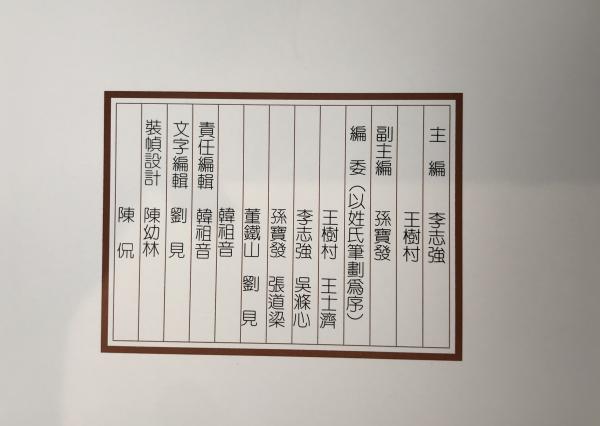 主編 李志強
王樹村
副主編 孫寶發
編委（以姓氏筆劃爲序）
王樹村 王士濟
李志強 吳滌心
孫寶發 張道梁
董鐵山 劉見
韓祖音
責任編輯 韓祖音
文字編輯 劉見
裝幀設計 陳幼林
陳侃